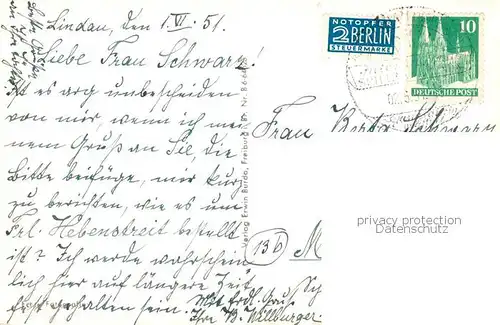 Lindau, den 1.VI.51.
Liebe Frau Schwarz!
Ist es arg unbescheiden
von mir wenn ich mei-
nem Gruß an Sie, die
Bitte beifüge, mir kurz
zu berichten, wie es um
Frl. Hebenstreit bestellt
ist? Ich werde wahrschein-
lich hier auf längere Zeit
fest gehalten sein. Mit frdl. Gruß
Ihre B. Willburger.
NOTOPFER
2 BERLIN
STEUERMARKE
10
DEUTSCHE POST
Frau Schwarz
13b M
Verlag Erwin Burda, Freiburg i. Br. Nr.
privacy protection
Datenschutz